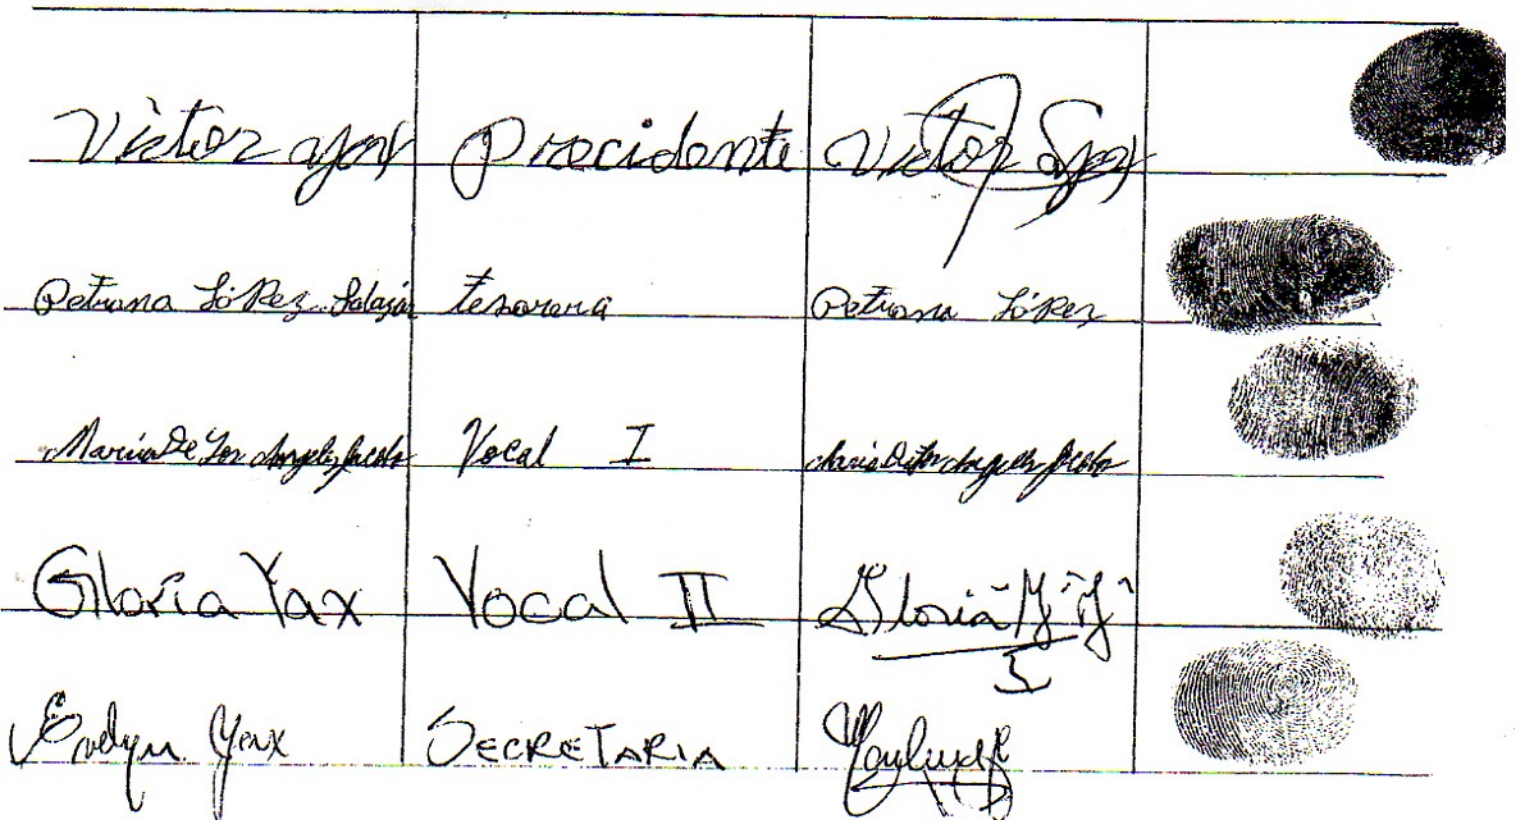 Victor yax Precidente Victor yax
Petrona López Salazar tesorera Petrona López
Maria De Los Angeles Jacobo Vocal I Maria De Los Angeles Jacobo
Gloria Yax Vocal II Gloria Y Y
Evelyn Yax SECRETARIA